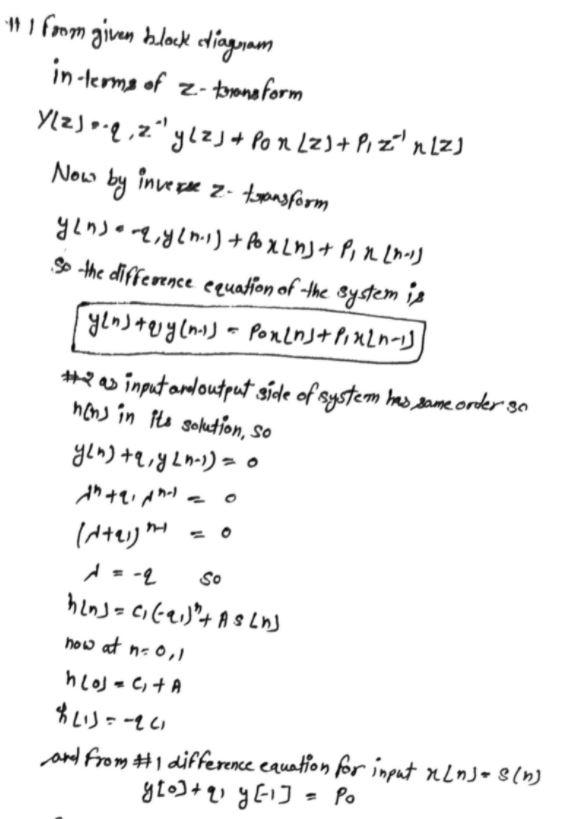 #1 From given block diagram
in-terms of z-transform
Y[z] = -q₁z⁻¹y[z] + P₀x[z] + P₁z⁻¹x[z]
Now by inverse z-transform
y[n] = -q₁y[n-1] + P₀x[n] + P₁x[n-1]
So the difference equation of the system is
y[n] + q₁y[n-1] = P₀x[n] + P₁x[n-1]
#2 as input and output side of system has same order so
h[n] in its solution, so
y[n] + q₁y[n-1] = 0
λⁿ + q₁λⁿ⁻¹ = 0
(λ+q₁)ⁿ⁻¹ = 0
λ = -q so
h[n] = C₁(-q₁)ⁿ + Aδ[n]
now at n=0,1
h[0] = C₁ + A
h[1] = -qC₁
and from #1 difference equation for input x[n] = δ[n]
y[0] + q₁ y[-1] = P₀